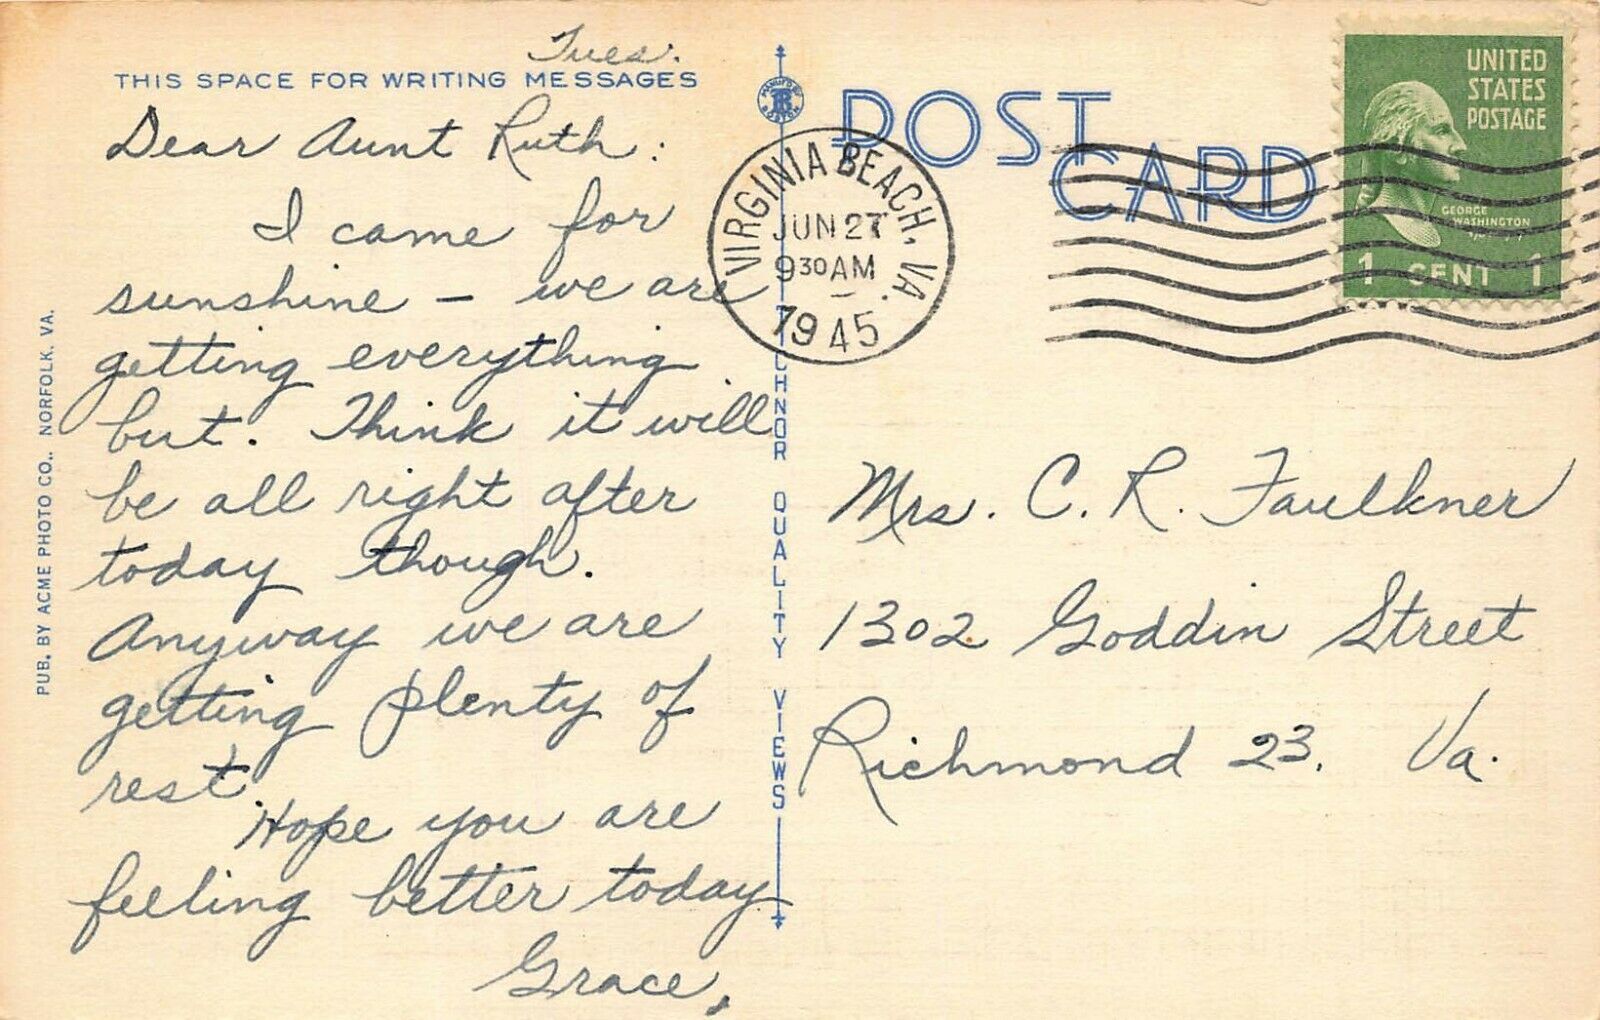 Tues.
THIS SPACE FOR WRITING MESSAGES
Dear Aunt Ruth:
I came for
sunshine – we are
getting everything
but. Think it will
be all right after
today though.
Anyway we are
getting plenty of
rest.
Hope you are
feeling better today
Grace.
PUB. BY ACME PHOTO CO., NORFOLK, VA.
TICHNOR QUALITY VIEWS
POST CARD
VIRGINIA BEACH, VA.
JUN 27
9 30 AM
1945
UNITED
STATES
POSTAGE
GEORGE
WASHINGTON
1 CENT 1
Mrs. C. R. Faulkner
1302 Goddin Street
Richmond 23, Va.